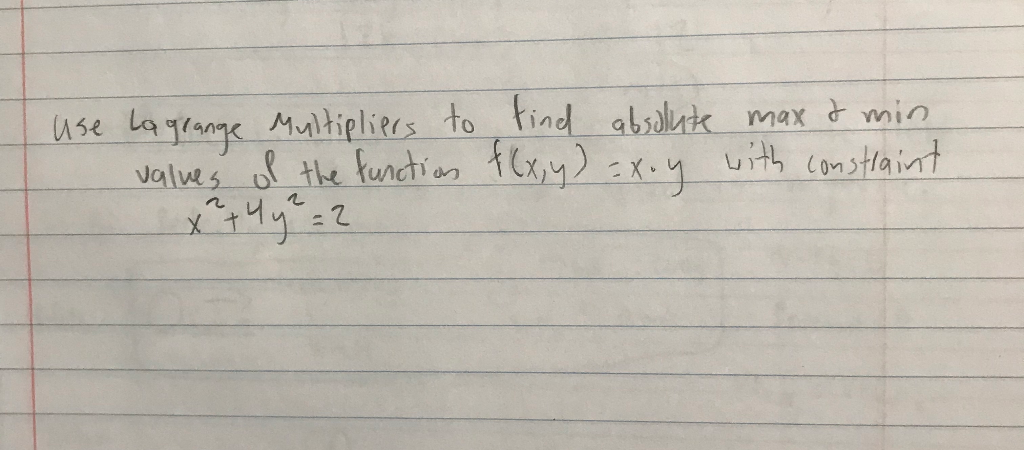 Use Lagrange Multipliers to find absolute max & min
values of the function f(x,y) = x·y with constraint
x² + 4y² = 2